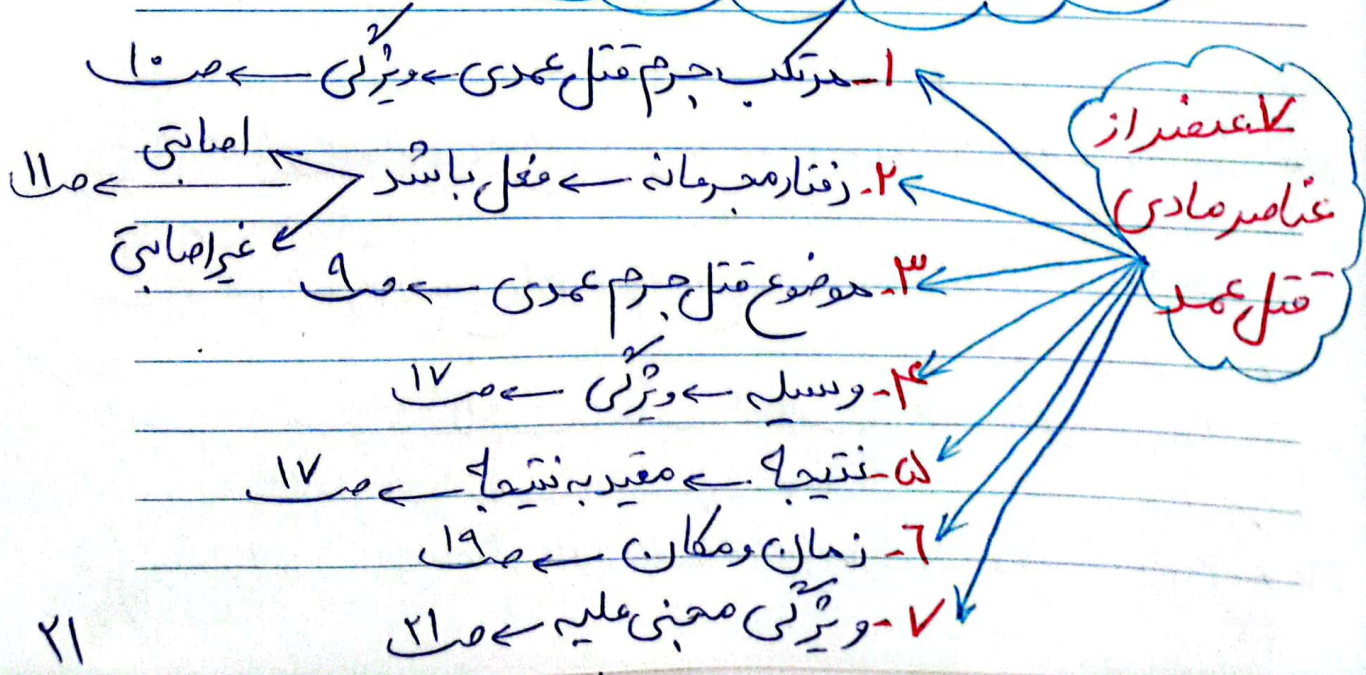 ۷ عنصر از
عناصر مادی
قتل عمد
۱- مرتکب جرم قتل عمدی ← ویژگی ← ص ۱۰
۲- رفتار مجرمانه ← فعل باشد
اصابتی
غیراصابتی
← ص ۱۱
۳- موضوع قتل جرم عمدی ← ص ۹
۴- وسیله ← ویژگی ← ص ۱۷
۵- نتیجه ← مقید به نتیجه ← ص ۱۷
۶- زمان و مکان ← ص ۱۹
۷- ویژگی مجنی علیه ← ص ۲۱
۲۱